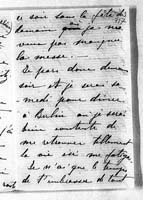 ce soir sans la fête de
demain je ne
veux pas manquer
la messe.
Je pars donc demain
soir et je serai sa-
medi pour dîner
à Berlin où je serai
bien contente de
me retrouver tellement
la vie ici me fatigue.
Je n'ai que le temps
de t'embrasser de tout